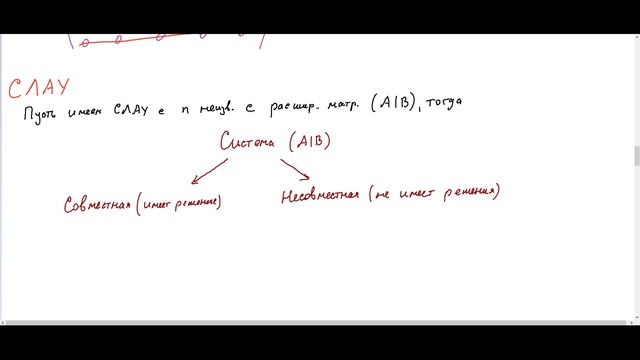 СЛАУ
Пусть имеем СЛАУ с n неизв. с расшир. матр. (A|B), тогда
Система (A|B)
Совместная (имеет решение)
Несовместная (не имеет решения)